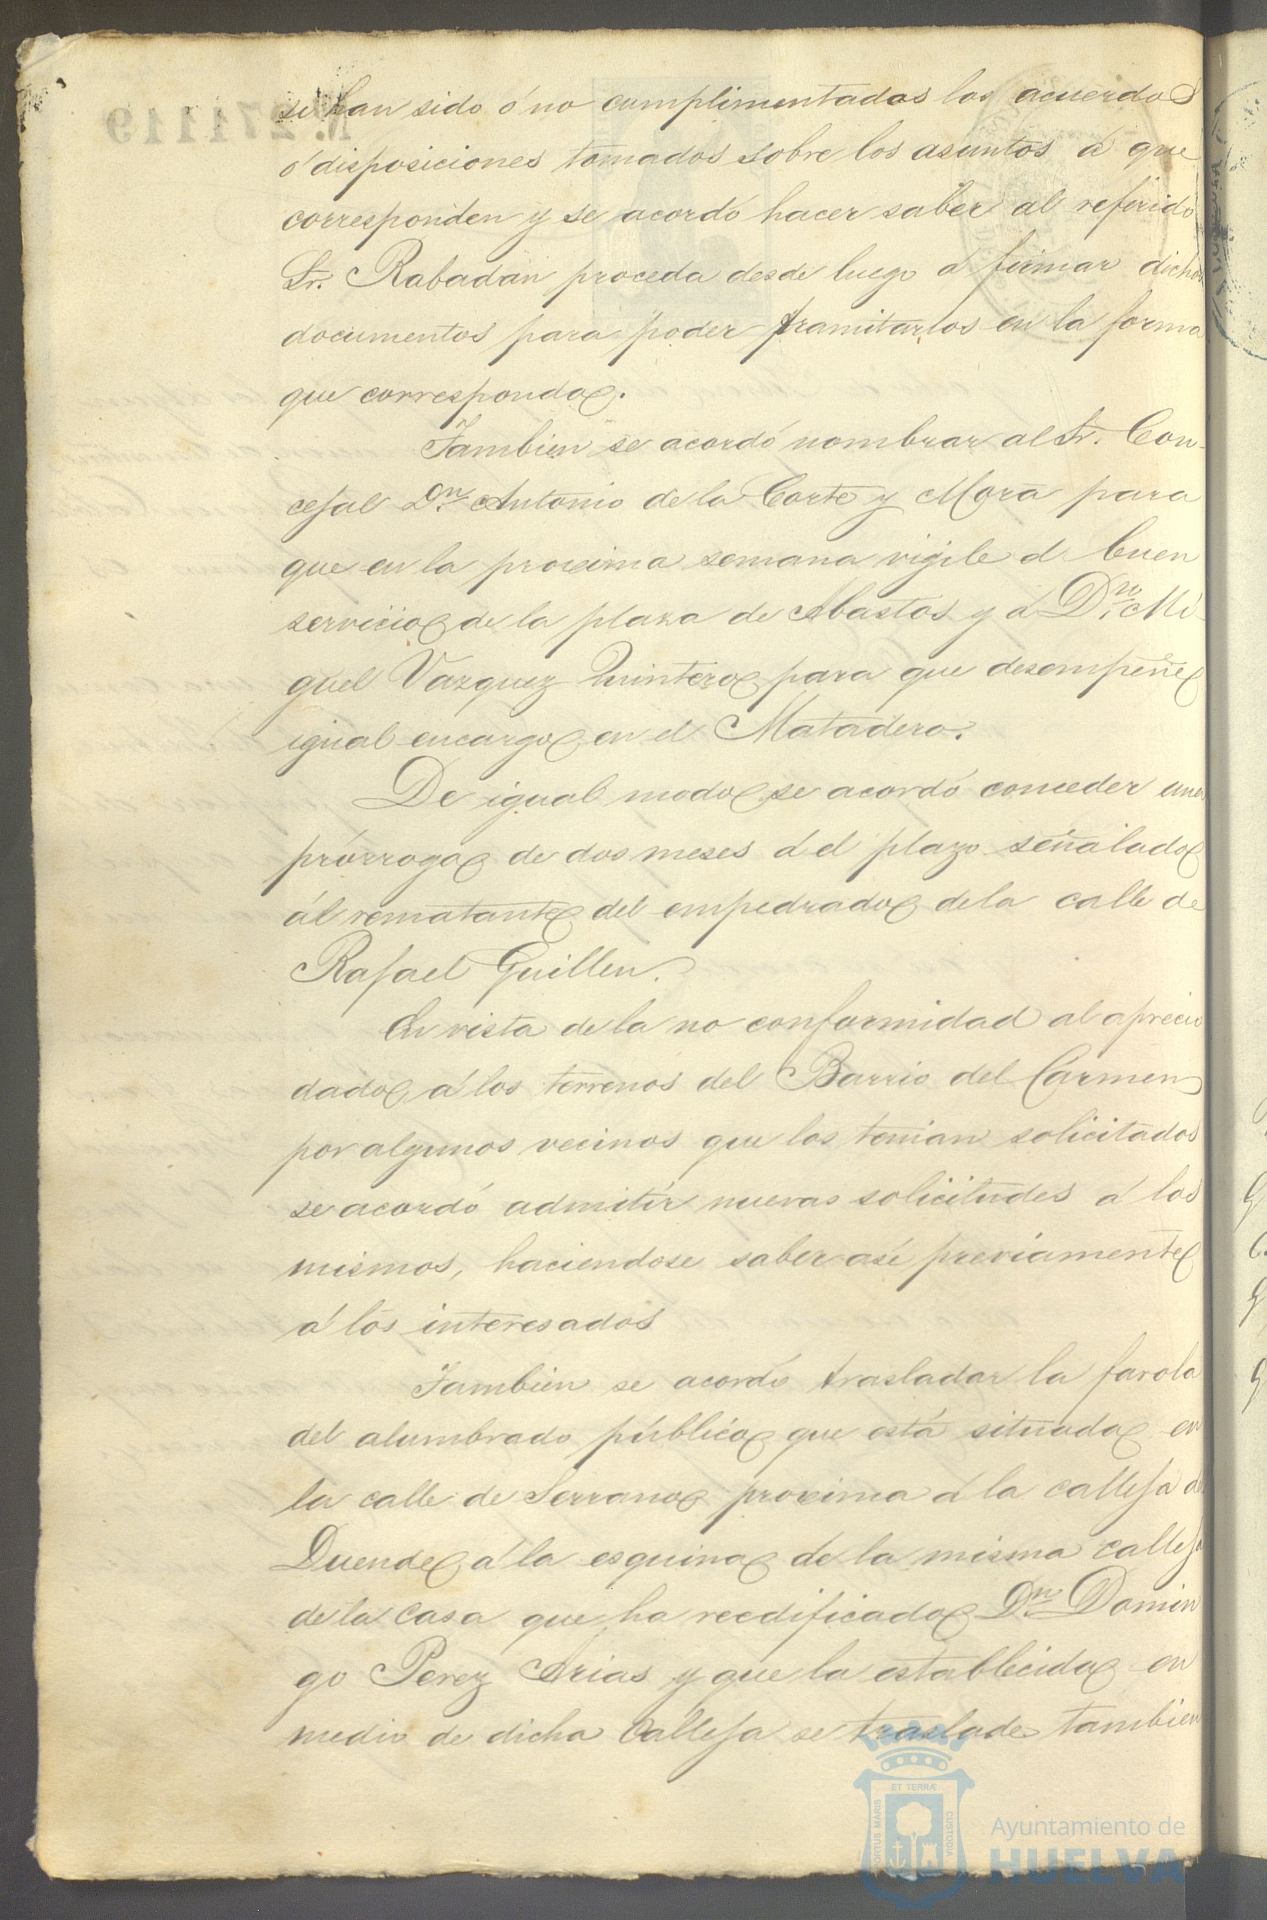 si han sido ó no cumplimentados los acuerdos
ó disposiciones tomados sobre los asuntos á que
corresponden y se acordó hacer saber al referido
Sr. Rabadan proceda desde luego á firmar dichos
documentos para poder tramitarlos en la forma
que corresponda.
Tambien se acordó nombrar al Sr. Con-
cejal Dn. Antonio de la Corte y Mora para
que en la proxima semana vigile el buen
servicio de la plaza de Abastos y á Dn. Mi-
guel Vazquez Quintero para que desempeñe
igual encargo en el Matadero.
De igual modo se acordó conceder una
prórroga de dos meses á el plazo señalado
ál rematante del empedrado de la calle de
Rafael Guillen.
En vista de la no conformidad al aprecio
dado á los terrenos del Barrio del Carmen
por algunos vecinos que los tenian solicitados
se acordó admitir nuevas solicitudes á los
mismos, haciendose saber asi préviamente
á los interesados
Tambien se acordó trasladar la farola
del alumbrado público que está situada en
la calle de Serrano proxima á la calleja del
Duende á la esquina de la misma calleja
de la casa que ha reedificado Dn. Domin
go Perez Arias y que la establecida en
medio de dicha Calleja se traslade tambien
Nº 271119
PORTUS MARIS ET TERRÆ CUSTODIA
Ayuntamiento de
HUELVA